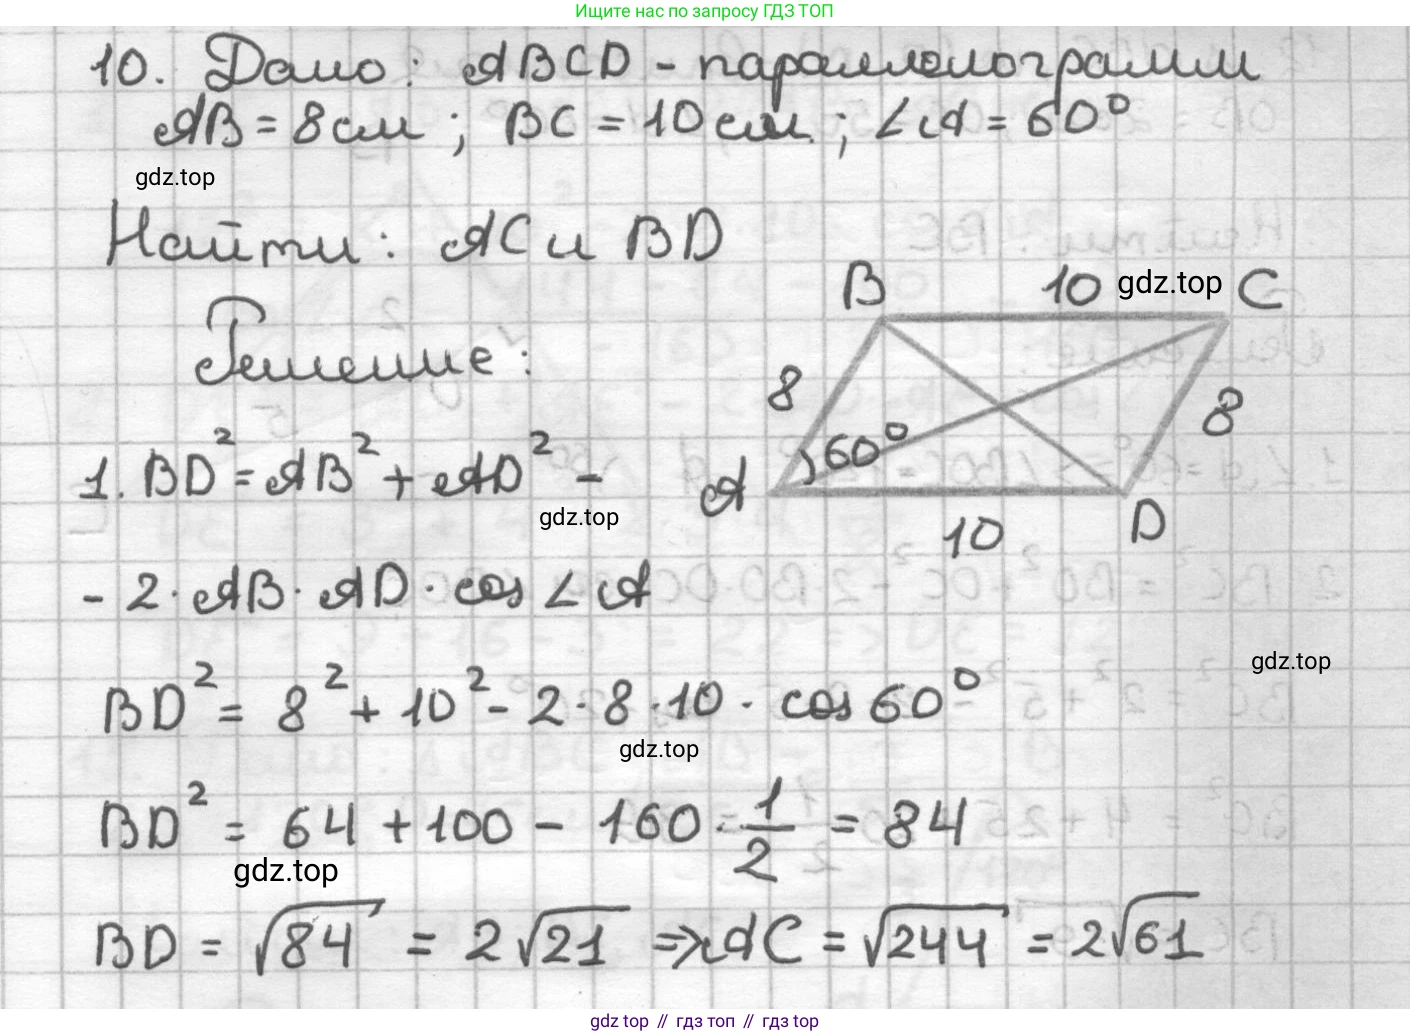 Ищите нас по запросу ГДЗ ТОП
10. Дано: ABCD - параллелограмм
AB = 8 см ; BC = 10 см ; ∠A = 60°
gdz.top
Найти: AC и BD
B 10 gdz.top C
Решение:
8 8
60°
1. BD² = AB² + AD² -
A D
gdz.top
10
- 2 · AB · AD · cos ∠A
gdz.top
BD² = 8² + 10² - 2 · 8 · 10 · cos 60°
gdz.top
BD² = 64 + 100 - 160 · 1/2 = 84
gdz.top
BD = √84 = 2√21 => AC = √244 = 2√61
gdz top // гдз топ // гдз top